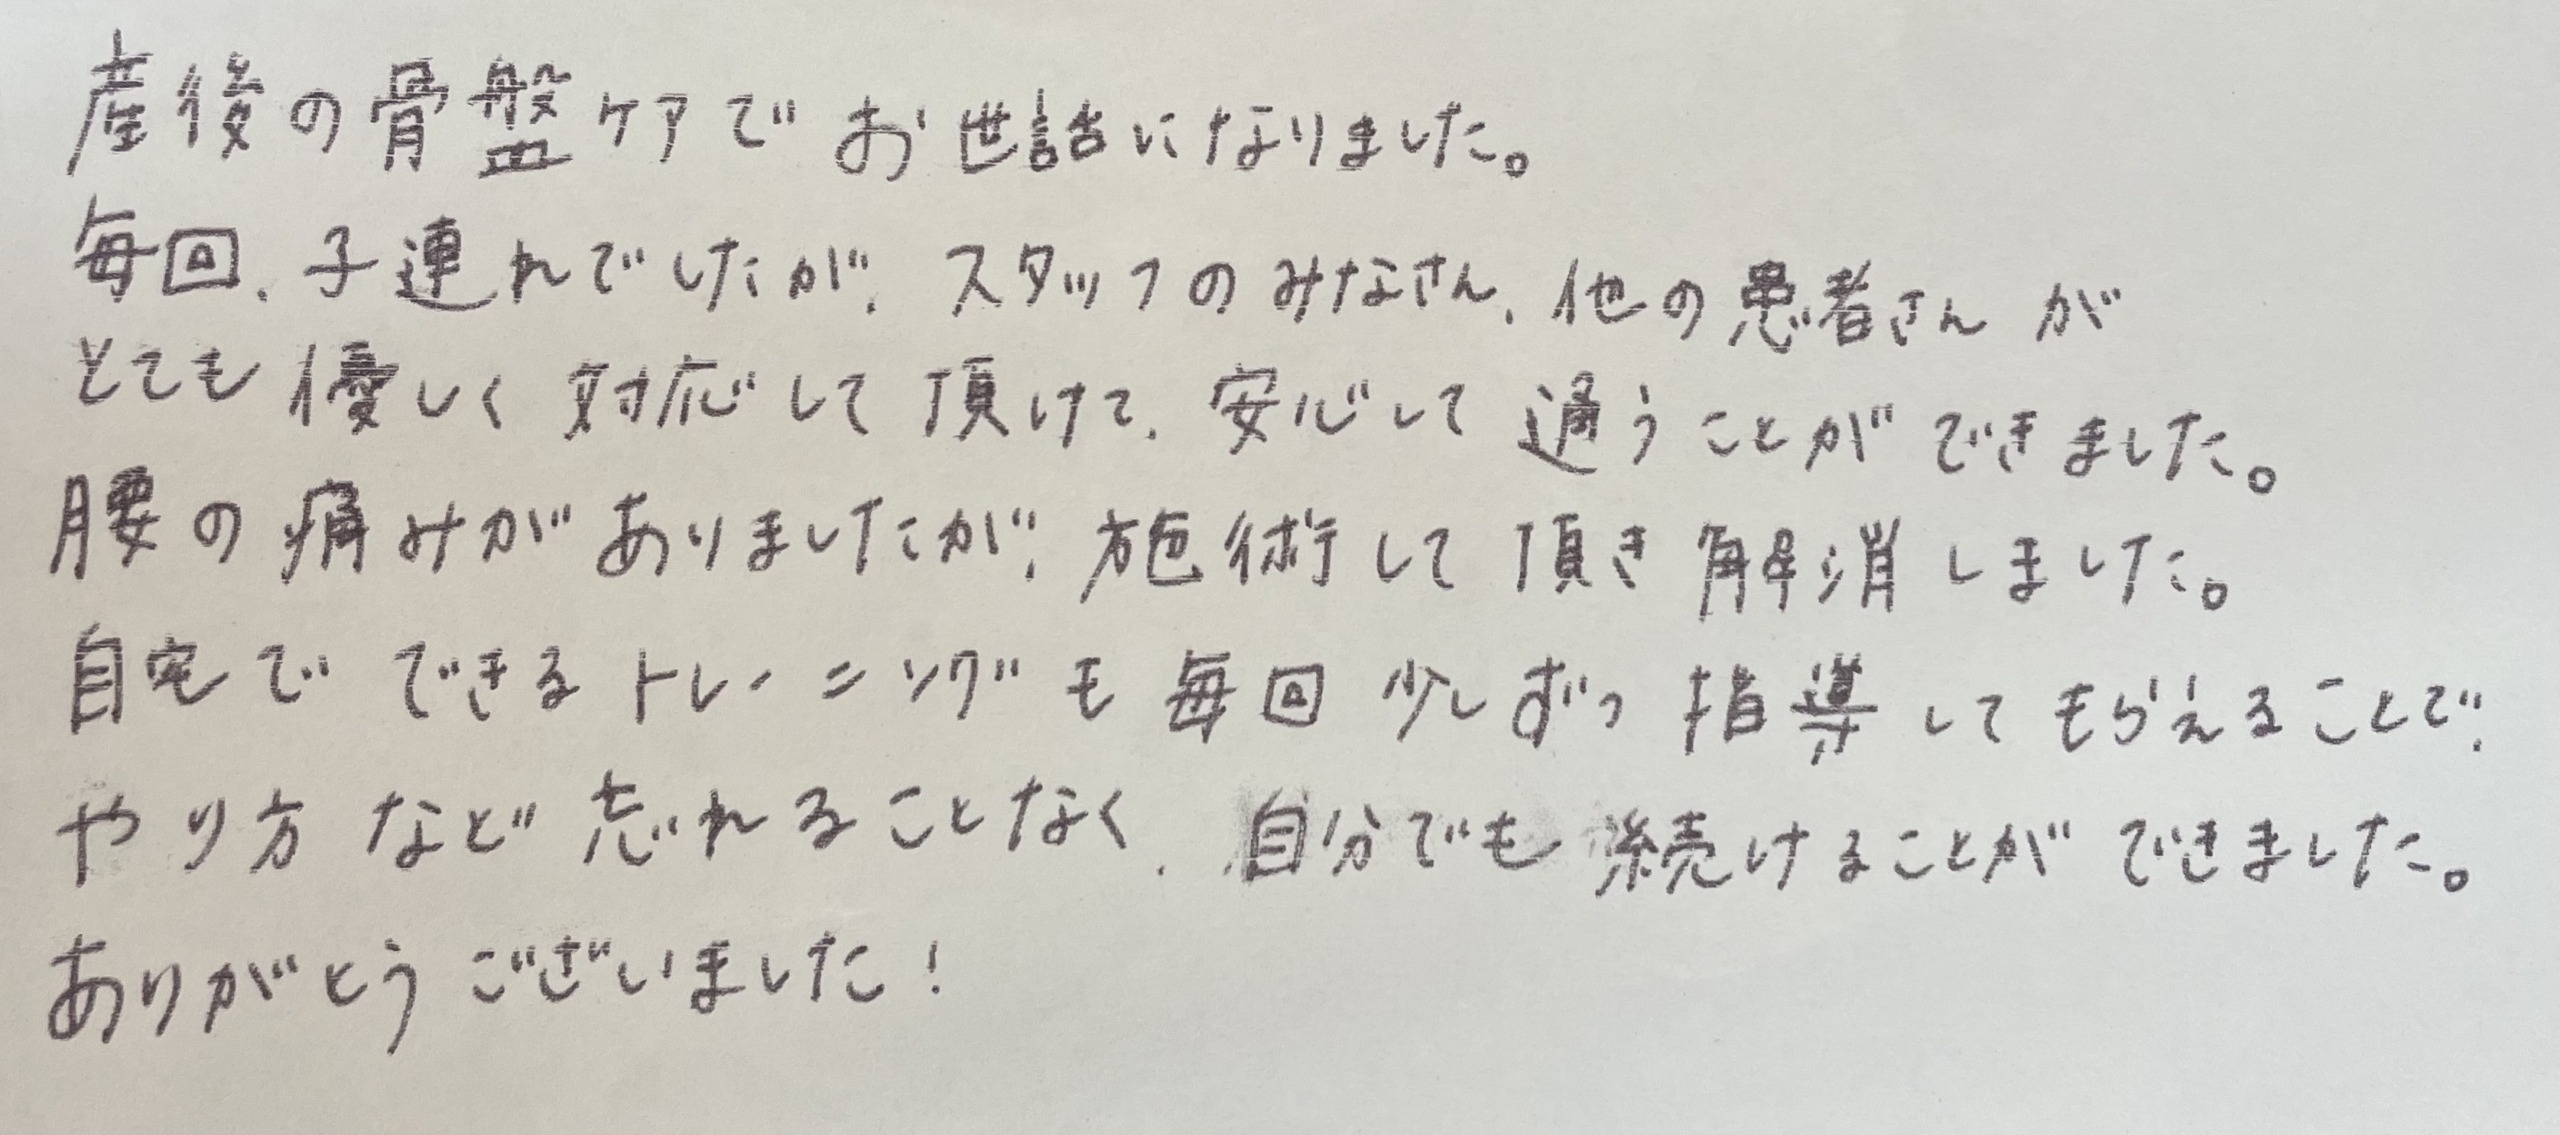 産後の骨盤ケアでお世話になりました。
毎回、子連れでしたが、スタッフのみなさん、他の患者さんが
とても優しく対応して頂けて、安心して通うことができました。
腰の痛みがありましたが、施術して頂き解消しました。
自宅でできるトレーニングも毎回少しずつ指導してもらえることで、
やり方など忘れることなく、自分でも続けることができました。
ありがとうございました!